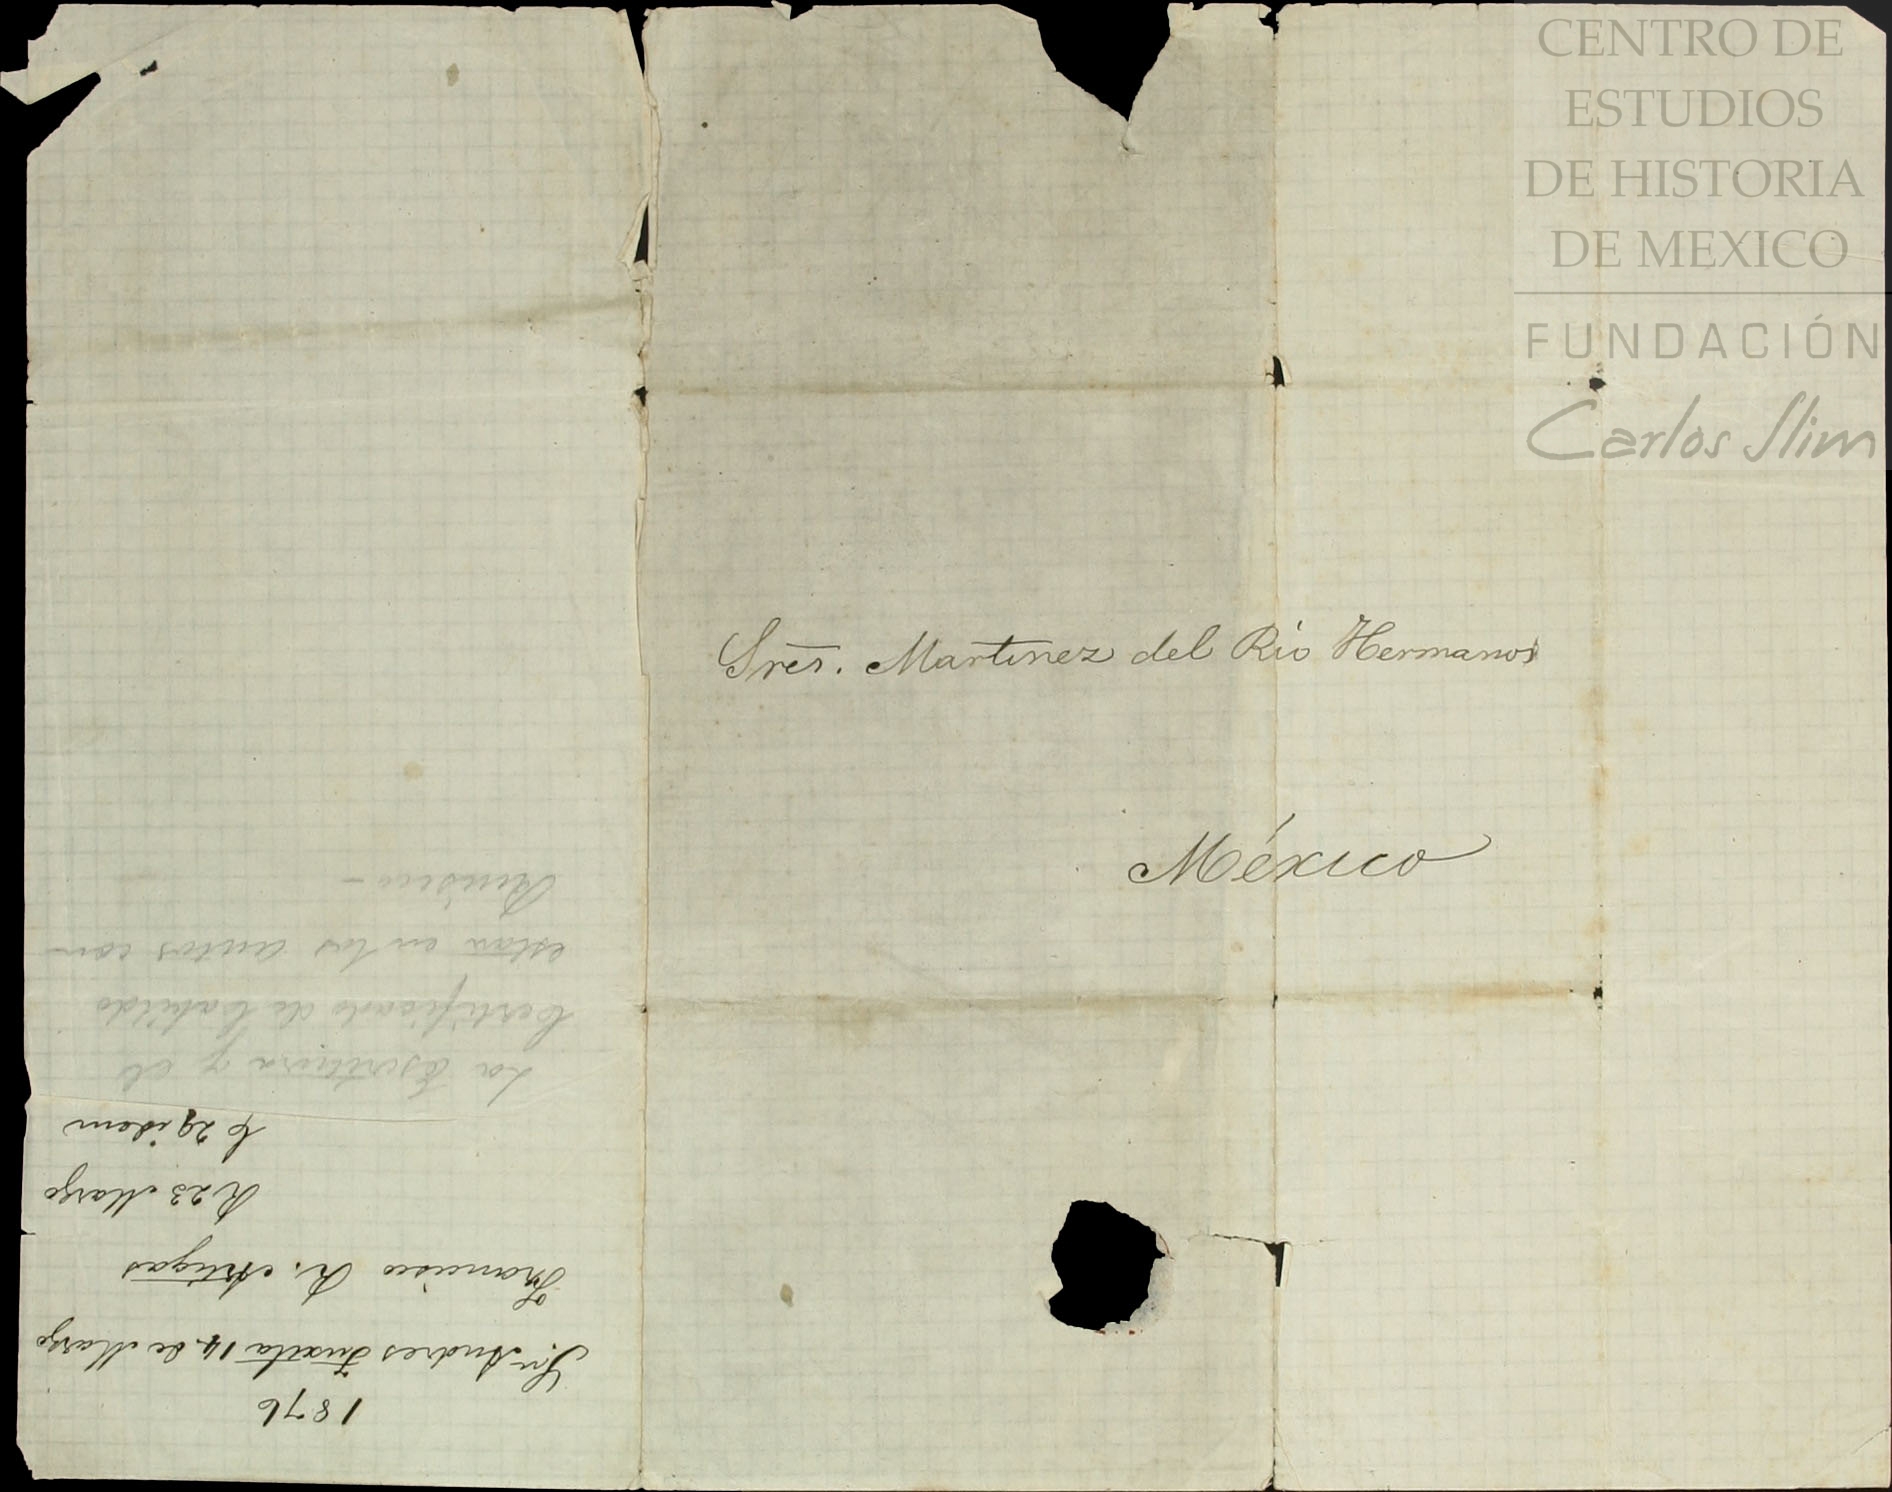 CENTRO DE
ESTUDIOS
DE HISTORIA
DE MEXICO
FUNDACIÓN
Carlos Slim
Sres. Martinez del Rio Hermanos
México
1876
Sn. Andres Tuxtla 14 de Marzo
Francisco R. Artigas
R 23 Marzo
C 29 idem
La Escritura y el
Certificado de Cabildo
estan en los autos con